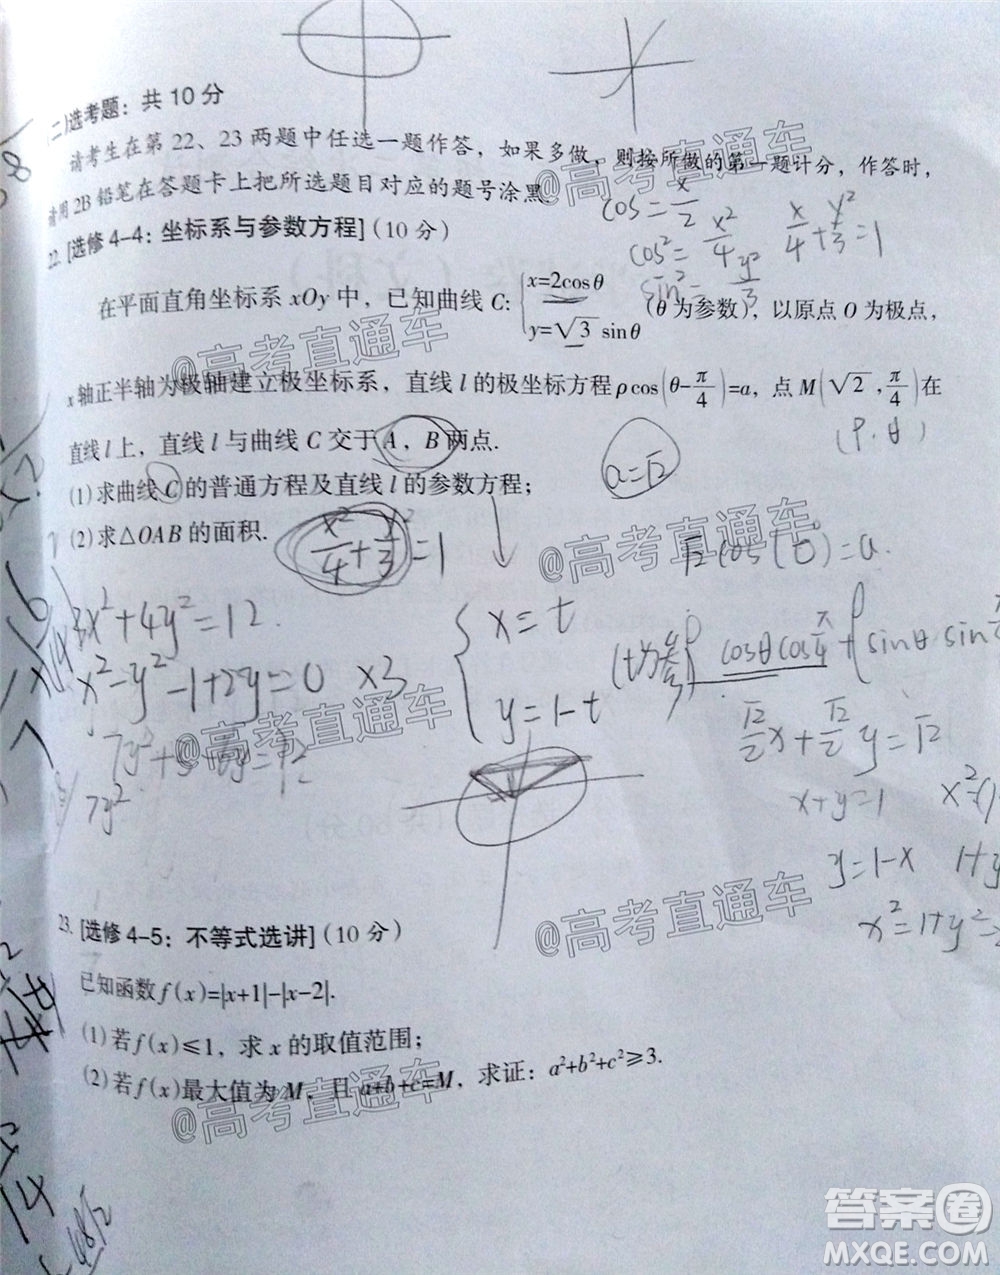 (二)选考题：共 10 分
请考生在第 22、23 两题中任选一题作答，如果多做，则按所做的第一题计分，作答时，
请用 2B 铅笔在答题卡上把所选题目对应的题号涂黑
@高考直通车
cos = x/2
cos² = x²/4
sin² = y²/3
x/4 + y²/3 = 1
22. [选修 4-4：坐标系与参数方程] (10 分)
在平面直角坐标系 xOy 中，已知曲线 C: { x=2cosθ y=√3 sinθ (θ 为参数)，以原点 O 为极点，
@高考直通车
x 轴正半轴为极轴建立极坐标系，直线 l 的极坐标方程 ρcos(θ-π/4)=a，点 M(√2, π/4)在
直线 l 上，直线 l 与曲线 C 交于 A，B 两点.
(ρ, θ)
a=√2
(1)求曲线 C 的普通方程及直线 l 的参数方程；
(2)求△OAB 的面积.
x²/4 + y²/3 = 1
@高考直通车
√2cos(0)=a.
3x²+4y²=12.
x²-y²-1+2y=0 ×3
{ x=t y=1-t (t为参)
cosθcosπ/4 + sinθsin
@高考直通车
√2/2 x + √2/2 y = √2
7y²
x+y=1
y=1-x
x²=1+y²-2
@高考直通车
23. [选修 4-5：不等式选讲] (10 分)
已知函数 f(x)=|x+1|-|x-2|.
(1)若 f(x)≤1，求 x 的取值范围；
(2)若 f(x)最大值为 M，且 a+b+c=M，求证：a²+b²+c²≥3.
@高考直通车
答案圈
MXQE.COM